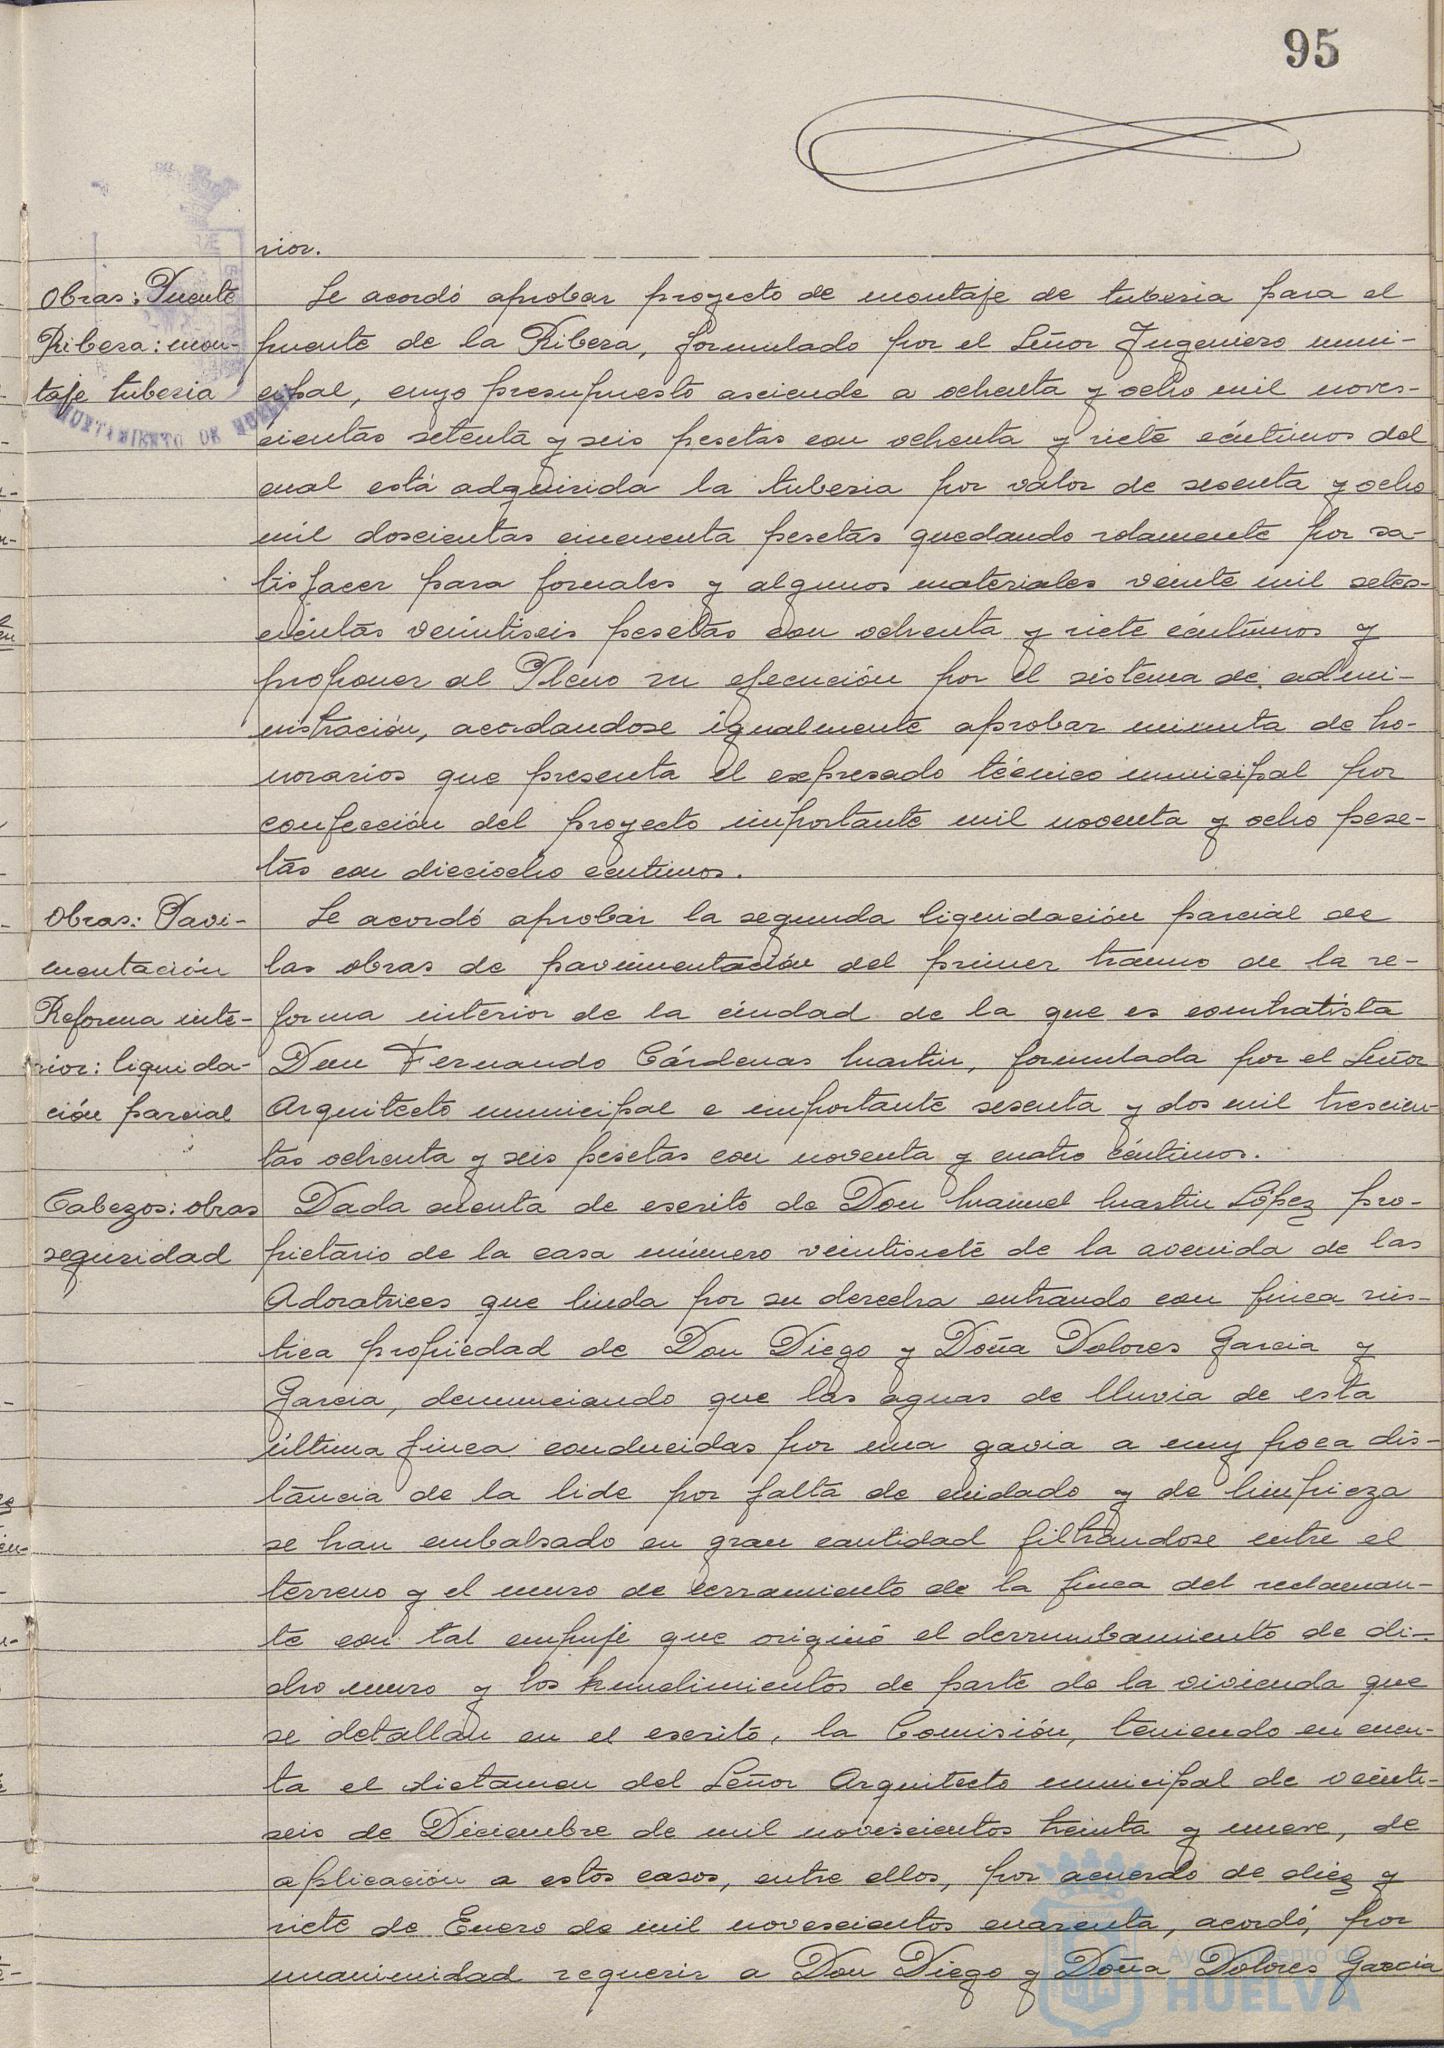 95
rior.
Obras: Puente
Ribera: mon-
taje tuberia
Se acordó aprobar proyecto de montaje de tuberia para el
puente de la Ribera, formulado por el Señor Ingeniero muni-
cipal, cuyo presupuesto asciende a ochenta y ocho mil noves-
cientas setenta y seis pesetas con ochenta y siete céntimos del
cual está adquirida la tuberia por valor de sesenta y ocho
mil doscientas cincuenta pesetas quedando solamente por sa-
tisfacer para jornales y algunos materiales veinte mil setes-
cientas veintiseis pesetas con ochenta y siete céntimos y
proponer al Pleno su ejecución por el sistema de admi-
nistración, acordandose igualmente aprobar minuta de ho-
norarios que presenta el expresado técnico municipal por
confección del proyecto importante mil noventa y ocho pese-
tas con dieciocho centimos.
Obras: Pavi-
mentación
Reforma inte-
rior: liquida-
ción parcial
Se acordó aprobar la segunda liquidación parcial de
las obras de pavimentación del primer tramo de la re-
forma interior de la ciudad de la que es contratista
Don Fernando Cárdenas Martin, formulada por el Señor
Arquitecto municipal e importante sesenta y dos mil trescien-
tas ochenta y seis pesetas con noventa y cuatro céntimos.
Cabezos: obras
seguridad
Dada cuenta de escrito de Don Manuel Martin López pro-
pietario de la casa número veintisiete de la avenida de las
Adoratrices que linda por su derecha entrando con finca rús-
tica propiedad de Don Diego y Doña Dolores Garcia y
Garcia, denunciando que las aguas de lluvia de esta
última finca conducidas por una gavia a muy poca dis-
tancia de la lide por falta de cuidado y de limpieza
se han embalsado en gran cantidad filtrandose entre el
terreno y el muro de cerramiento de la finca del reclaman-
te con tal empuje que originó el derrumbamiento de di-
cho muro y los hundimientos de parte de la vivienda que
se detallan en el escrito, la Comisión, teniendo en cuen-
ta el dictamen del Señor Arquitecto municipal de veinti-
seis de Diciembre de mil novescientos treinta y nueve, de
aplicación a estos casos, entre ellos, por acuerdo de diez y
siete de Enero de mil novescientos cuarenta, acordó, por
unanimidad requerir a Don Diego y Doña Dolores Garcia
AYUNTAMIENTO DE HUELVA
Ayuntamiento de
HUELVA